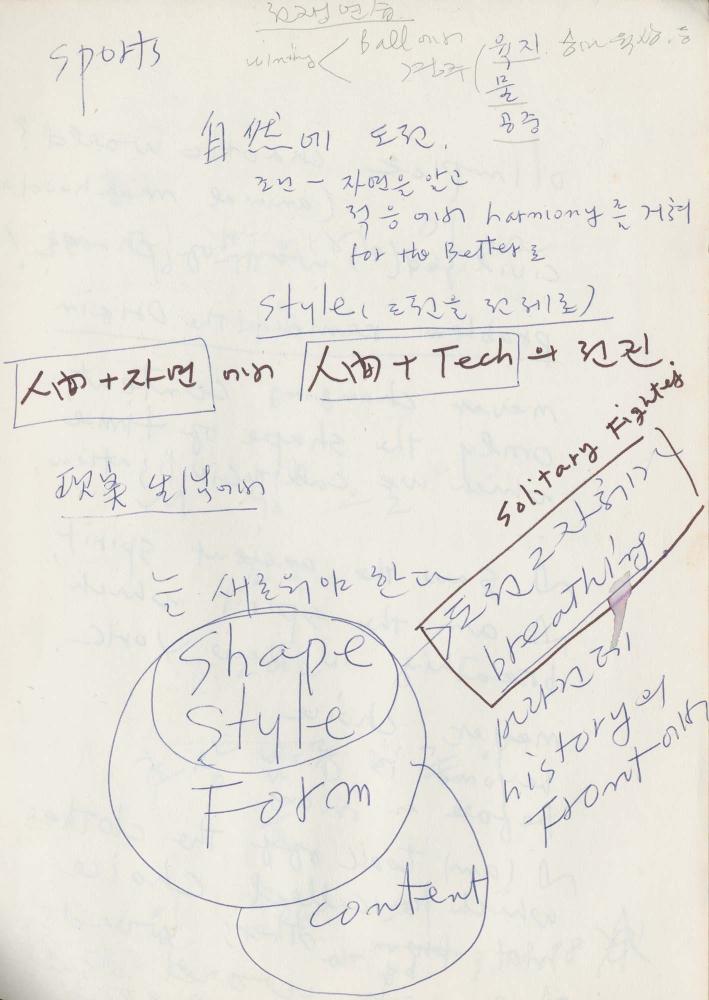 sports
Ball에서
육지
물
공중
自然에 도전.
조건 — 자연을 알고
적응에서 harmony를 거쳐
for the Better로
style(도전을 전제로)
人間+자연 에서 人間+Tech의 전진.
現実 生活에서
Solitary Fighter
도전 그 자체가
breathing
는 새로워야 한다
Shape
Style
Form
content
history의
Front에서